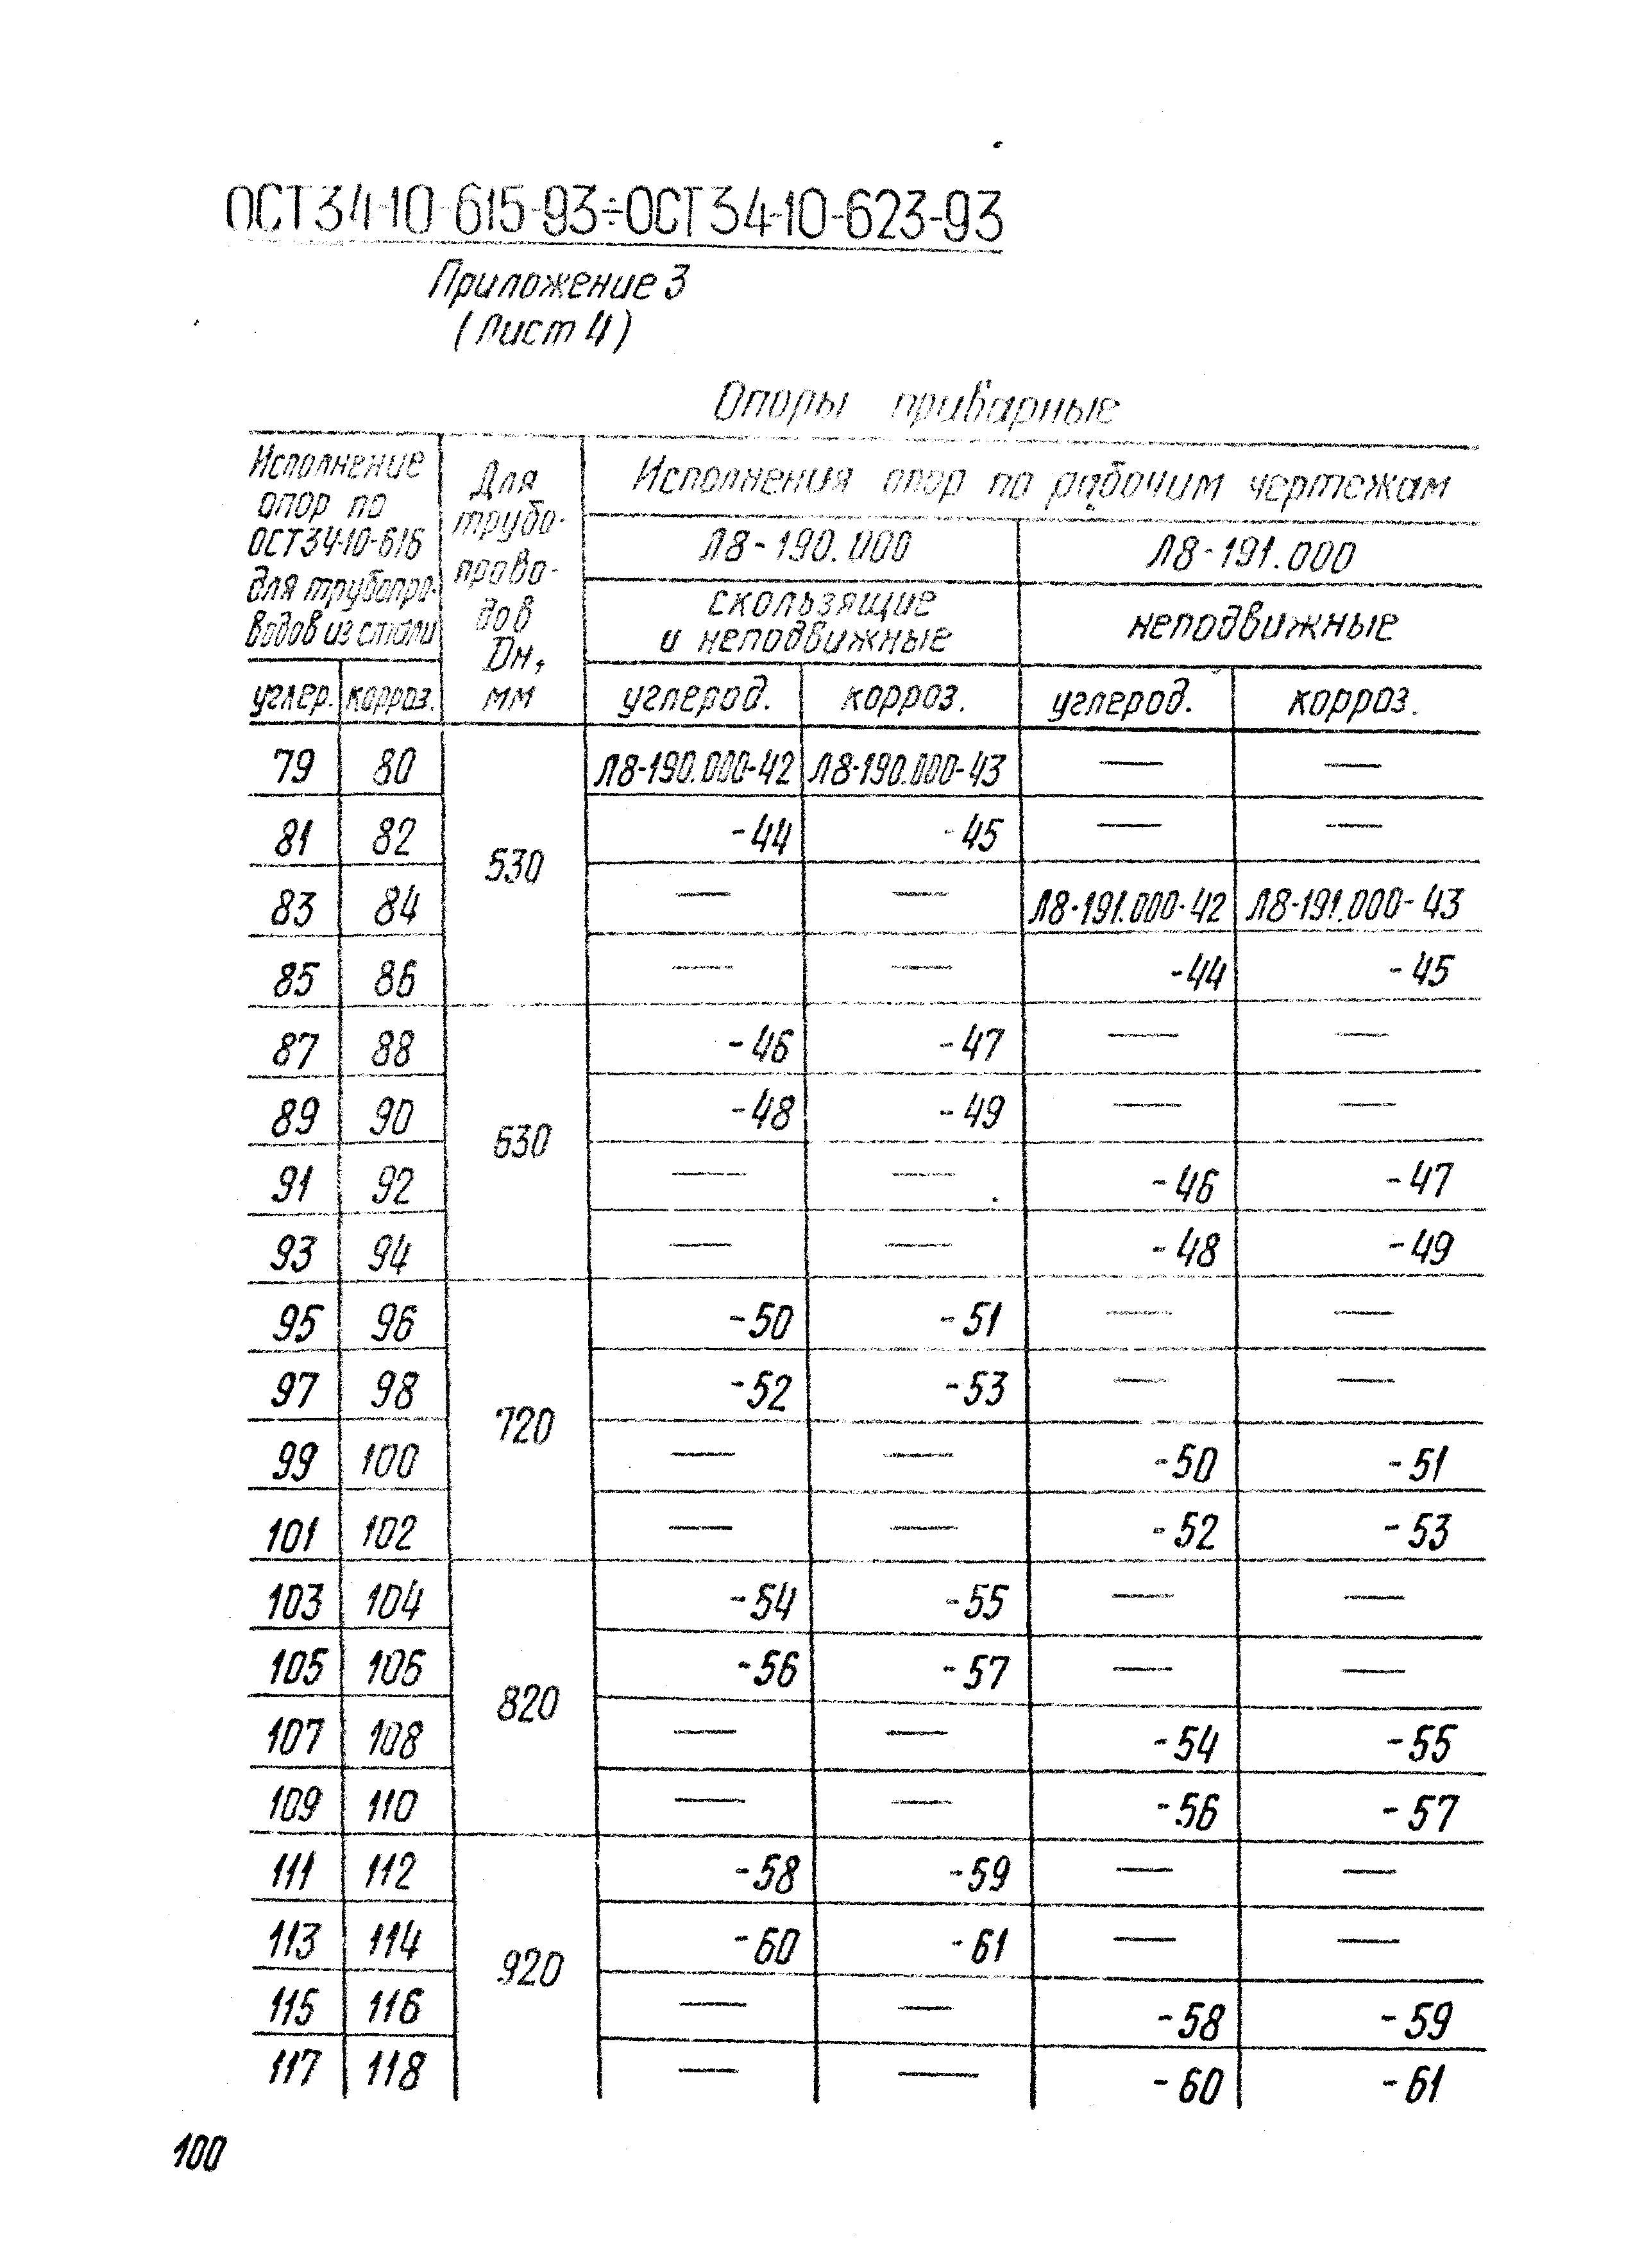 ОСТ 34-10-615-93÷ОСТ 34-10-623-93
Приложение 3
(Лист 4)
Опоры приварные
Исполнение опор по ОСТ34-10-616 для трубопроводов из стали
Для трубо-
прово-
дов
Dн,
мм
Исполнения опор по рабочим чертежам
Л8-190.000 Л8-191.000
скользящие
и неподвижные
неподвижные
углер. корроз. углерод. корроз. углерод. корроз.
79 80 530 Л8-190.000-42 Л8-190.000-43 — —
81 82 -44 -45 — —
83 84 — — Л8-191.000-42 Л8-191.000-43
85 86 — — -44 -45
87 88 630 -46 -47 — —
89 90 -48 -49 — —
91 92 — — -46 -47
93 94 — — -48 -49
95 96 720 -50 -51 — —
97 98 -52 -53 — —
99 100 — — -50 -51
101 102 — — -52 -53
103 104 820 -54 -55 — —
105 106 -56 -57 — —
107 108 — — -54 -55
109 110 — — -56 -57
111 112 920 -58 -59 — —
113 114 -60 -61 — —
115 116 — — -58 -59
117 118 — — -60 -61
100